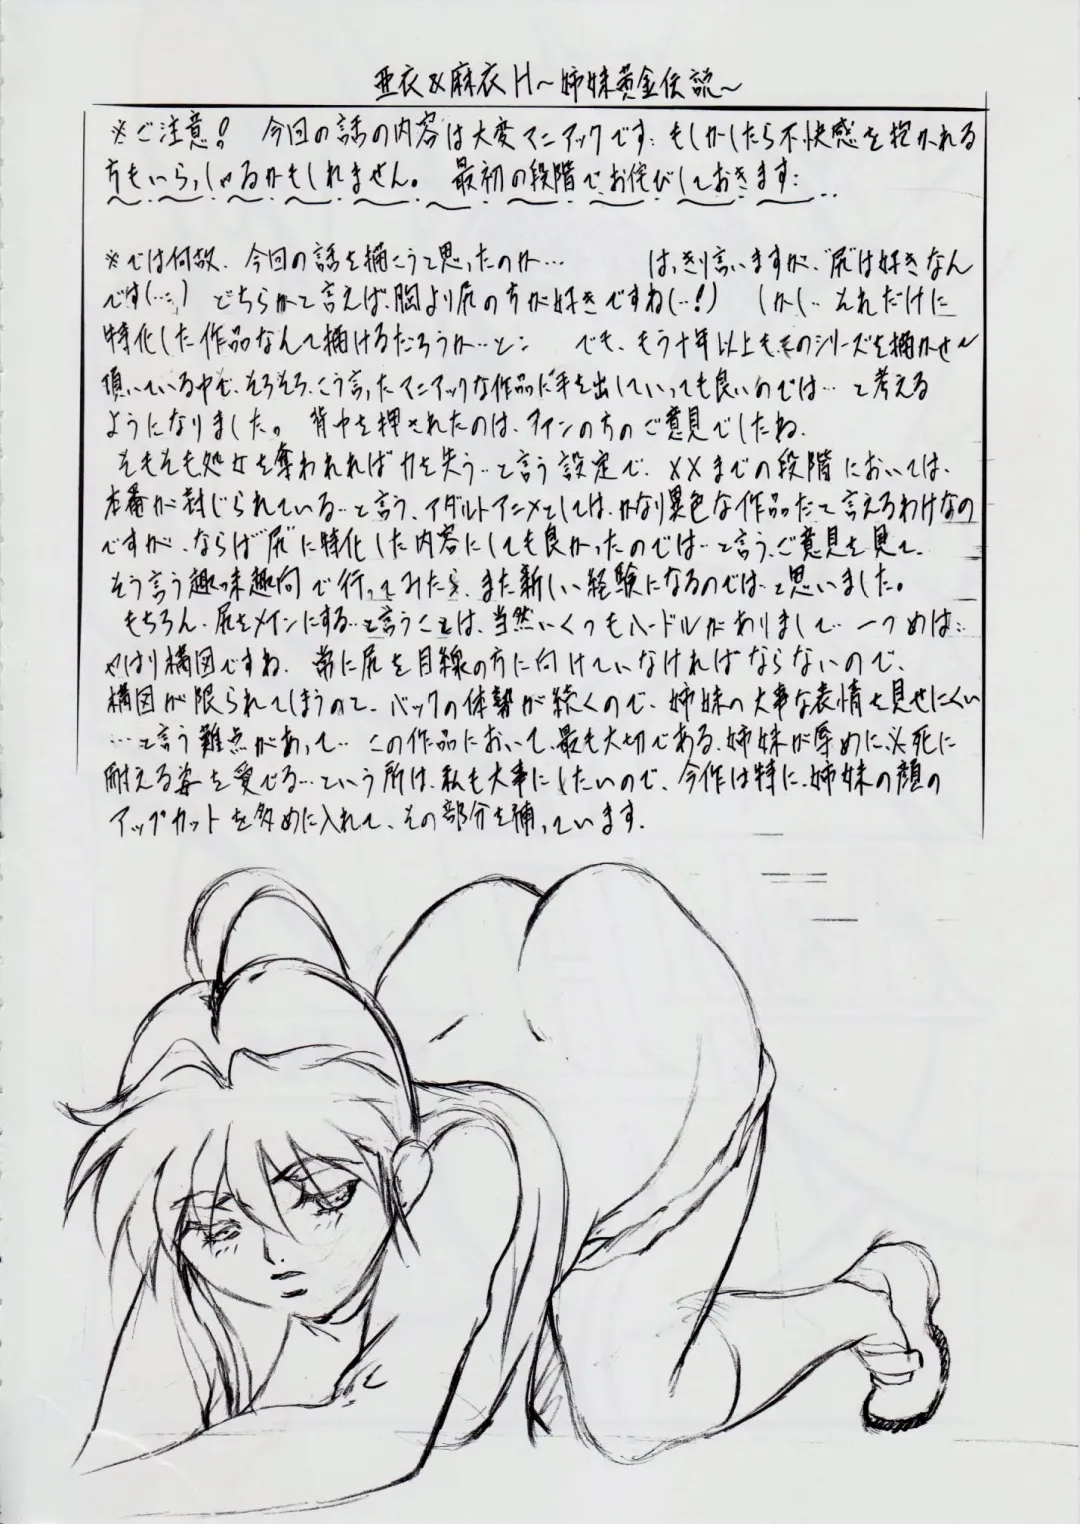 亜衣&麻衣H~姉妹黄金伝説~
※ご注意! 今回の話の内容は大変マニアックです… もしかしたら不快感を抱かれる
方もいらっしゃるかもしれません。 最初の段階でお侘びしておきます…
※では何故、今回の話を描こうと思ったのか… はっきり言いますが、“尻”は好きなん
です(…) どちらかと言えば、胸より尻の方が好きですね(…!) しかし… それだけに
特化した作品なんて描けるだろうか…と… でも、もう十年以上もそのシリーズを描かせて
頂いている中で、そろそろ、こう言ったマニアックな作品に手を出していっても良いのでは…と考える
ようになりました。 背中を押されたのは、ファンの方のご意見でしたね。
そもそも処女を奪われれば力を失う…と言う設定で、××までの段階においては、
本番が封じられている…と言う、アダルトアニメとしては、かなり異色な作品だと言えるわけなの
ですが、ならば“尻”に特化した内容にしても良かったのでは…と言う、ご意見を見て、
そう言う趣味趣向で行ってみたら、また新しい経験になるのでは…と思いました。
もちろん、尻をメインにする…と言うことは、当然いくつもハードルがありまして… 一つめは…
やはり構図ですね、常に尻を目線の方に向けていなければならないので、
構図が限られてしまうのと、バックの体勢が続くので、姉妹の大事な表情を見せにくい
…と言う難点があって… この作品において、最も大切である、姉妹が辱めに、必死に
耐える姿を愛でる…という所は、私も大事にしたいので、今作は特に、姉妹の顔の
アップカットを多めに入れて、その部分を補っています。